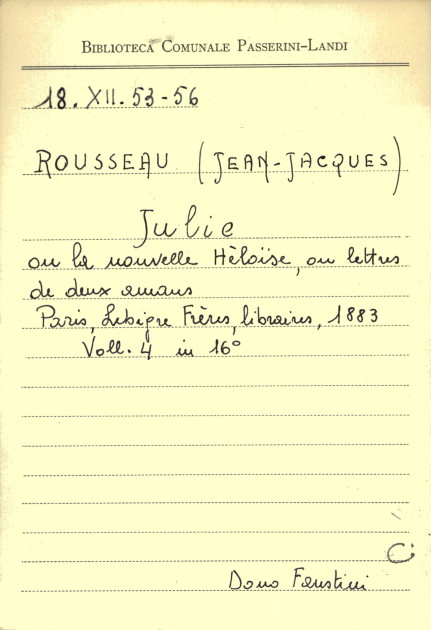 BIBLIOTECA COMUNALE PASSERINI-LANDI
18. XII. 53-56
ROUSSEAU (JEAN-JACQUES)
Julie
ou la nouvelle Hèloïse, ou lettres
de deux amans
Paris, Lebigre Frères, libraires, 1883
Voll. 4 in 16°
Dono Faustini